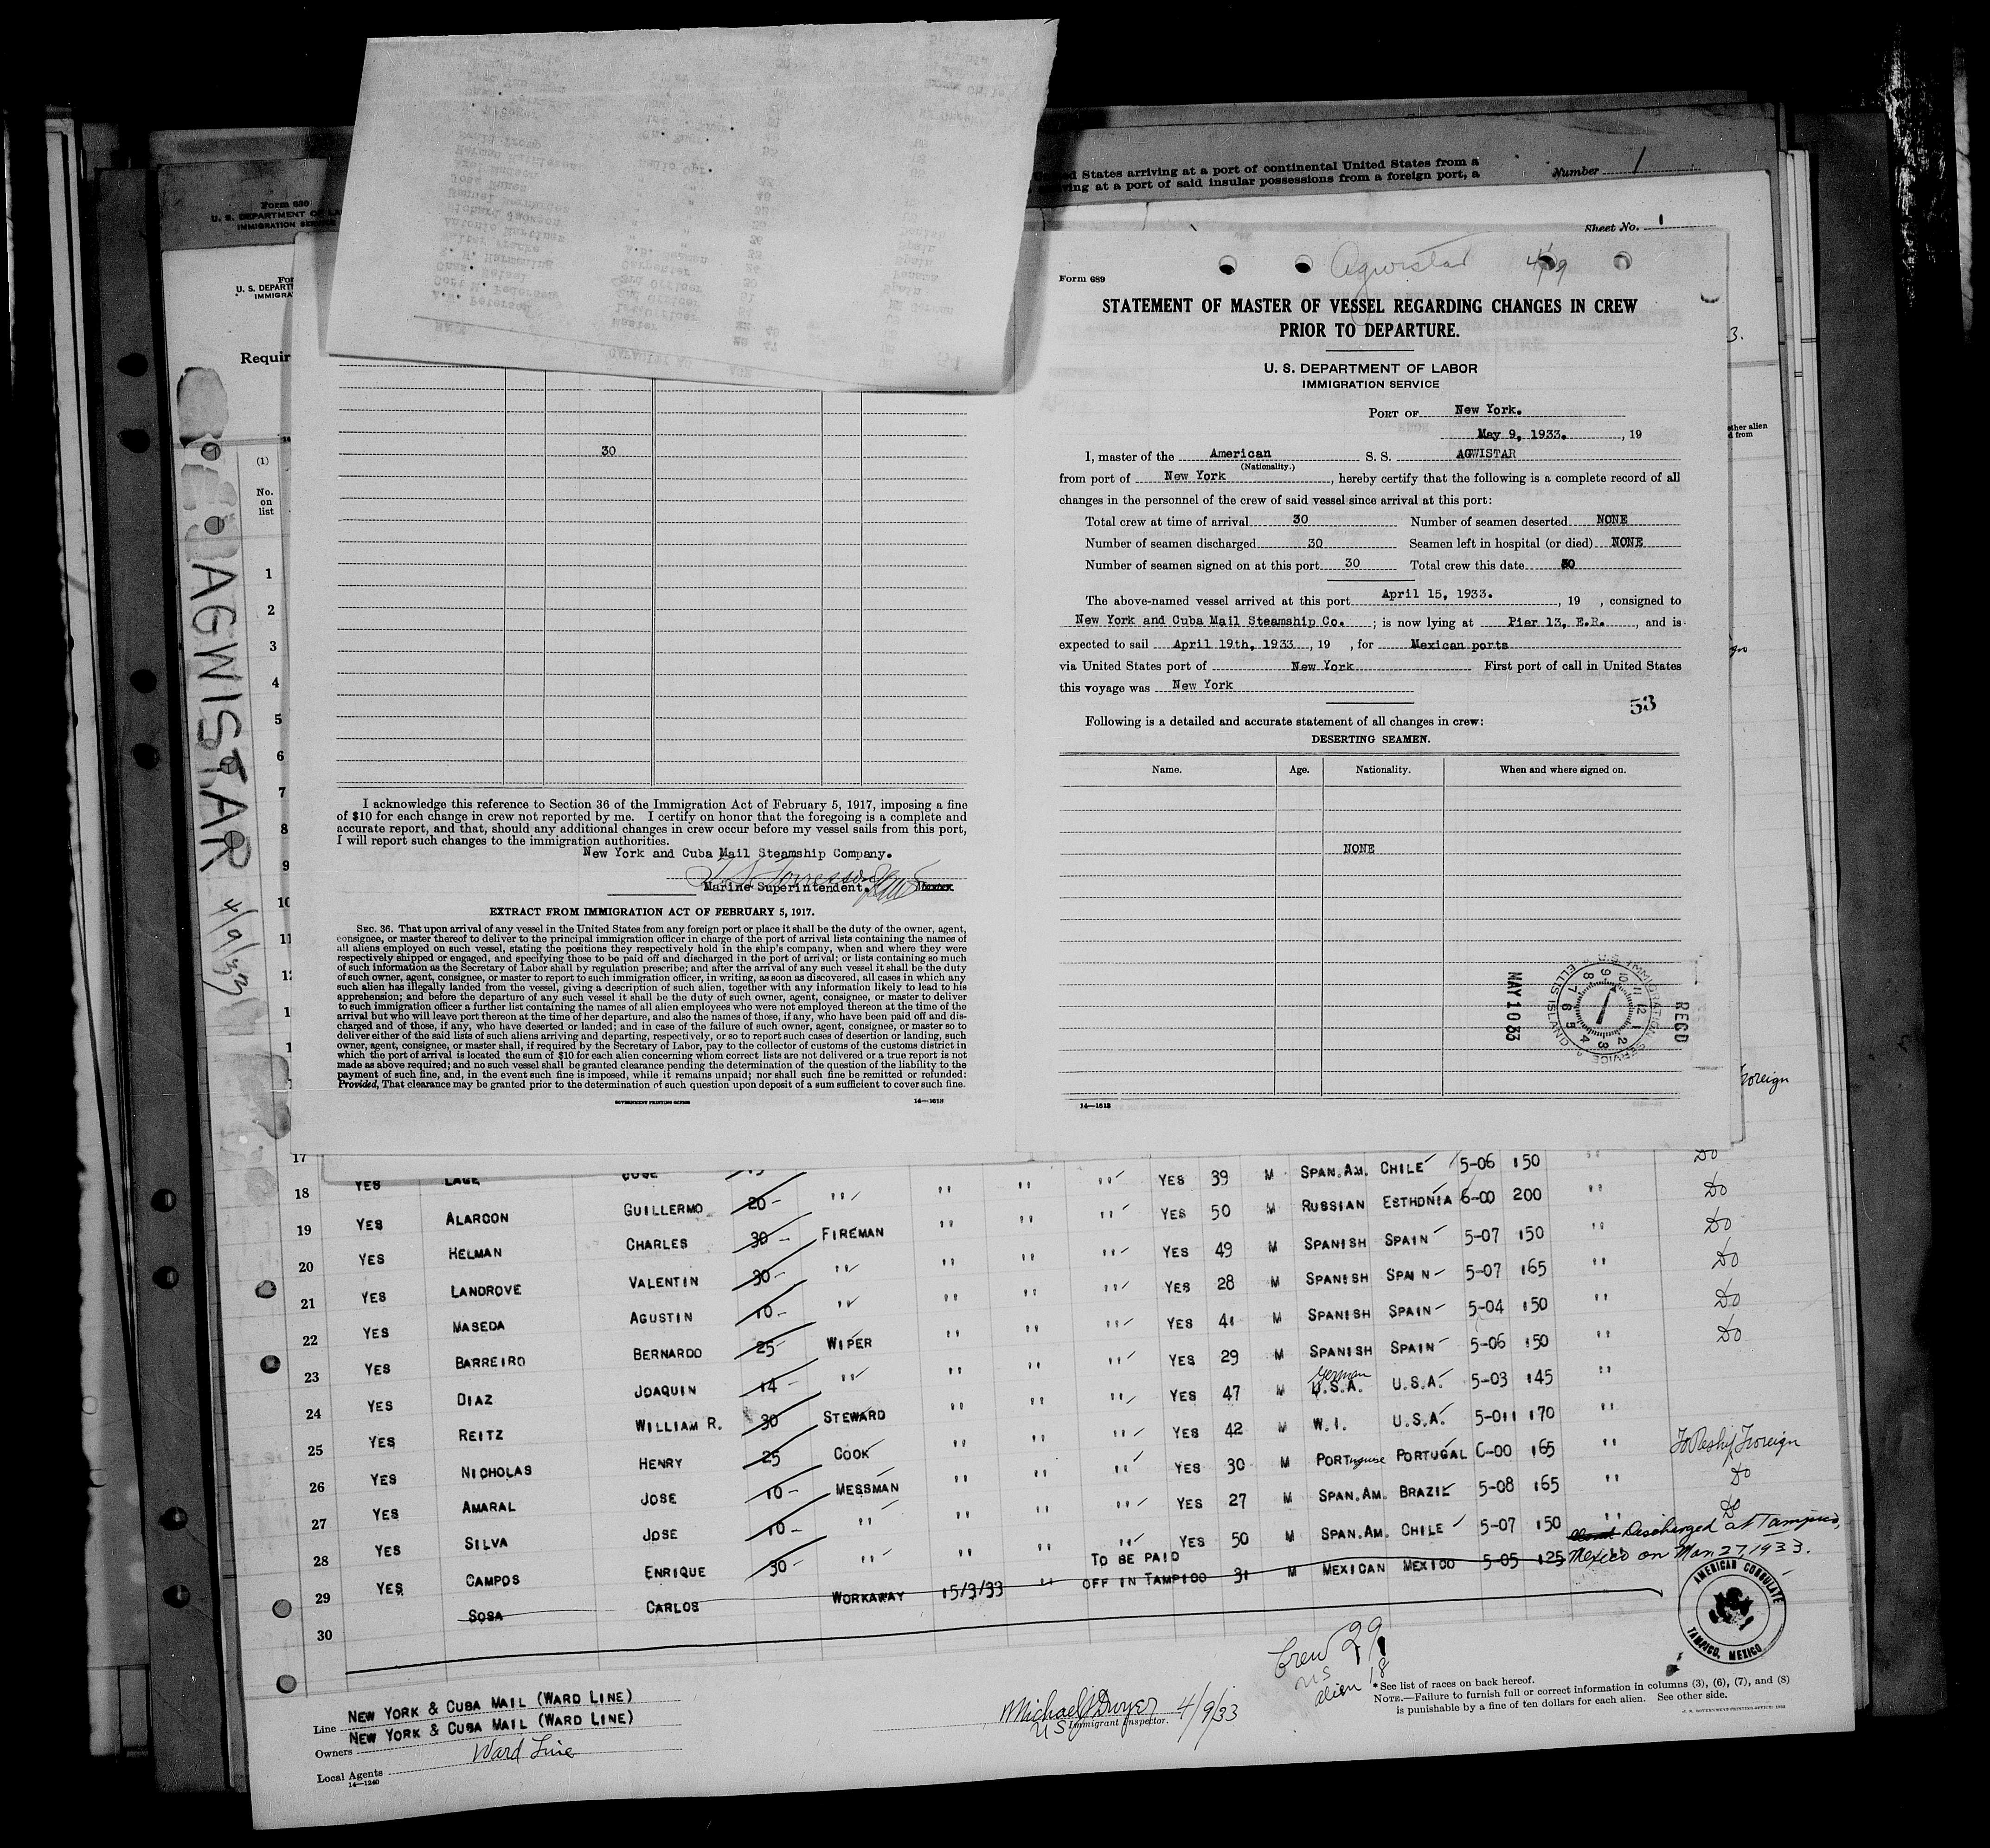 United States arriving at a port of continental United States from a
arriving at a port of said insular possessions from a foreign port, a
Number 1
Sheet No. 1
Form 680
U. S. DEPARTMENT OF LA
IMMIGRATION SERVICE
U. S. DEPARTI
IMMIGRA
Requir
(1)
No.
on
list
AGWISTAR 4/9/33
1
2
3
4
5
6
7
8
9
10
11
12
30
I acknowledge this reference to Section 36 of the Immigration Act of February 5, 1917, imposing a fine
of $10 for each change in crew not reported by me. I certify on honor that the foregoing is a complete and
accurate report, and that, should any additional changes in crew occur before my vessel sails from this port,
I will report such changes to the immigration authorities.
New York and Cuba Mail Steamship Company.
Marine Superintendent.
EXTRACT FROM IMMIGRATION ACT OF FEBRUARY 5, 1917.
SEC. 36. That upon arrival of any vessel in the United States from any foreign port or place it shall be the duty of the owner, agent,
consignee, or master thereof to deliver to the principal immigration officer in charge of the port of arrival lists containing the names of
all aliens employed on such vessel, stating the positions they respectively hold in the ship's company, when and where they were
respectively shipped or engaged, and specifying those to be paid off and discharged in the port of arrival; or lists containing so much
of such information as the Secretary of Labor shall by regulation prescribe; and after the arrival of any such vessel it shall be the duty
of such owner, agent, consignee, or master to report to such immigration officer, in writing, as soon as discovered, all cases in which any
such alien has illegally landed from the vessel, giving a description of such alien, together with any information likely to lead to his
apprehension; and before the departure of any such vessel it shall be the duty of such owner, agent, consignee, or master to deliver
to such immigration officer a further list containing the names of all alien employees who were not employed thereon at the time of the
arrival but who will leave port thereon at the time of her departure, and also the names of those, if any, who have been paid off and dis-
charged and of those, if any, who have deserted or landed; and in case of the failure of such owner, agent, consignee, or master so to
deliver either of the said lists of such aliens arriving and departing, respectively, or so to report such cases of desertion or landing, such
owner, agent, consignee, or master shall, if required by the Secretary of Labor, pay to the collector of customs of the customs district in
which the port of arrival is located the sum of $10 for each alien concerning whom correct lists are not delivered or a true report is not
made as above required; and no such vessel shall be granted clearance pending the determination of the question of the liability to the
payment of such fine, and, in the event such fine is imposed, while it remains unpaid; nor shall such fine be remitted or refunded:
Provided, That clearance may be granted prior to the determination of such question upon deposit of a sum sufficient to cover such fine.
GOVERNMENT PRINTING OFFICE
14—1613
Agwistar 4/9
Form 689
STATEMENT OF MASTER OF VESSEL REGARDING CHANGES IN CREW
PRIOR TO DEPARTURE.
U. S. DEPARTMENT OF LABOR
IMMIGRATION SERVICE
PORT OF New York.
May 9, 1933. , 19
I, master of the American S. S. AGWISTAR
(Nationality.)
from port of New York , hereby certify that the following is a complete record of all
changes in the personnel of the crew of said vessel since arrival at this port:
Total crew at time of arrival 30 Number of seamen deserted NONE
Number of seamen discharged 30 Seamen left in hospital (or died) NONE
Number of seamen signed on at this port 30 Total crew this date 30
The above-named vessel arrived at this port April 15, 1933. , 19 , consigned to
New York and Cuba Mail Steamship Co. ; is now lying at Pier 13, E.R. , and is
expected to sail April 19th, 1933 , 19 , for Mexican ports
via United States port of New York First port of call in United States
this voyage was New York
53
Following is a detailed and accurate statement of all changes in crew:
DESERTING SEAMEN.
Name. Age. Nationality. When and where signed on.
NONE
MAY 10 33
U.S. IMMIGRATION SERVICE ELLIS ISLAND
RECD
14—1613
Foreign
17 YES LAGE JOSE 15
18 YES ALARCON GUILLERMO 20- "" "" "" "" YES 39 M SPAN.AM. CHILE 5-06 150 "" Do
19 YES HELMAN CHARLES 30- FIREMAN "" "" "" YES 50 M RUSSIAN ESTHONIA 6-00 200 "" Do
20 YES LANDROVE VALENTIN 30- "" "" "" "" YES 49 M SPANISH SPAIN 5-07 150 "" Do
21 YES MASEDA AGUSTIN 10- "" "" "" "" YES 28 M SPANISH SPAIN 5-07 165 "" Do
22 YES BARREIRO BERNARDO 25- WIPER "" "" "" YES 41 M SPANISH SPAIN 5-04 150 "" Do
23 YES DIAZ JOAQUIN 14- "" "" "" "" YES 29 M SPANISH SPAIN 5-06 150 "" Do
24 YES REITZ WILLIAM R. 30 STEWARD "" "" "" YES 47 M German U.S.A. U.S.A. 5-03 145 ""
25 YES NICHOLAS HENRY 25 COOK "" "" "" YES 42 M W.I. U.S.A. 5-011 170 ""
26 YES AMARAL JOSE 10- MESSMAN "" "" "" YES 30 M PORTuguese PORTUGAL 6-00 165 "" To Reship Foreign
27 YES SILVA JOSE 10- "" "" "" "" YES 27 M SPAN.AM. BRAZIL 5-08 165 "" Do
28 YES CAMPOS ENRIQUE 30- "" "" "" YES 50 M SPAN.AM. CHILE 5-07 150 "" Do
29 SOSA CARLOS WORKAWAY 15/3/33 "" TO BE PAID OFF IN TAMPICO 31 M MEXICAN MEXICO 5-05 125 Discharged at Tampico,
Mexico on Mar. 27, 1933.
30
AMERICAN CONSULATE
TAMPICO, MEXICO
Crew 29
US
alien 18
Line NEW YORK & CUBA MAIL (WARD LINE)
Owners NEW YORK & CUBA MAIL (WARD LINE)
Local Agents Ward Line
14—1240
Michael J Dwyer 4/9/33
US Immigrant Inspector.
*See list of races on back hereof.
NOTE.—Failure to furnish full or correct information in columns (3), (6), (7), and (8)
is punishable by a fine of ten dollars for each alien. See other side.